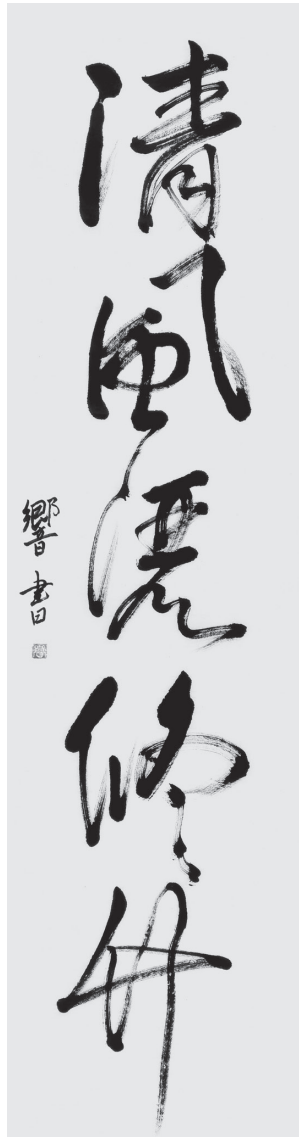 清風灑修竹
響書